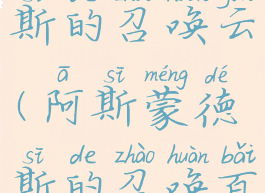 斯的召唤云
ā sī méng dé
(阿斯蒙德
sī de zhào huàn bǎi
斯的召唤百